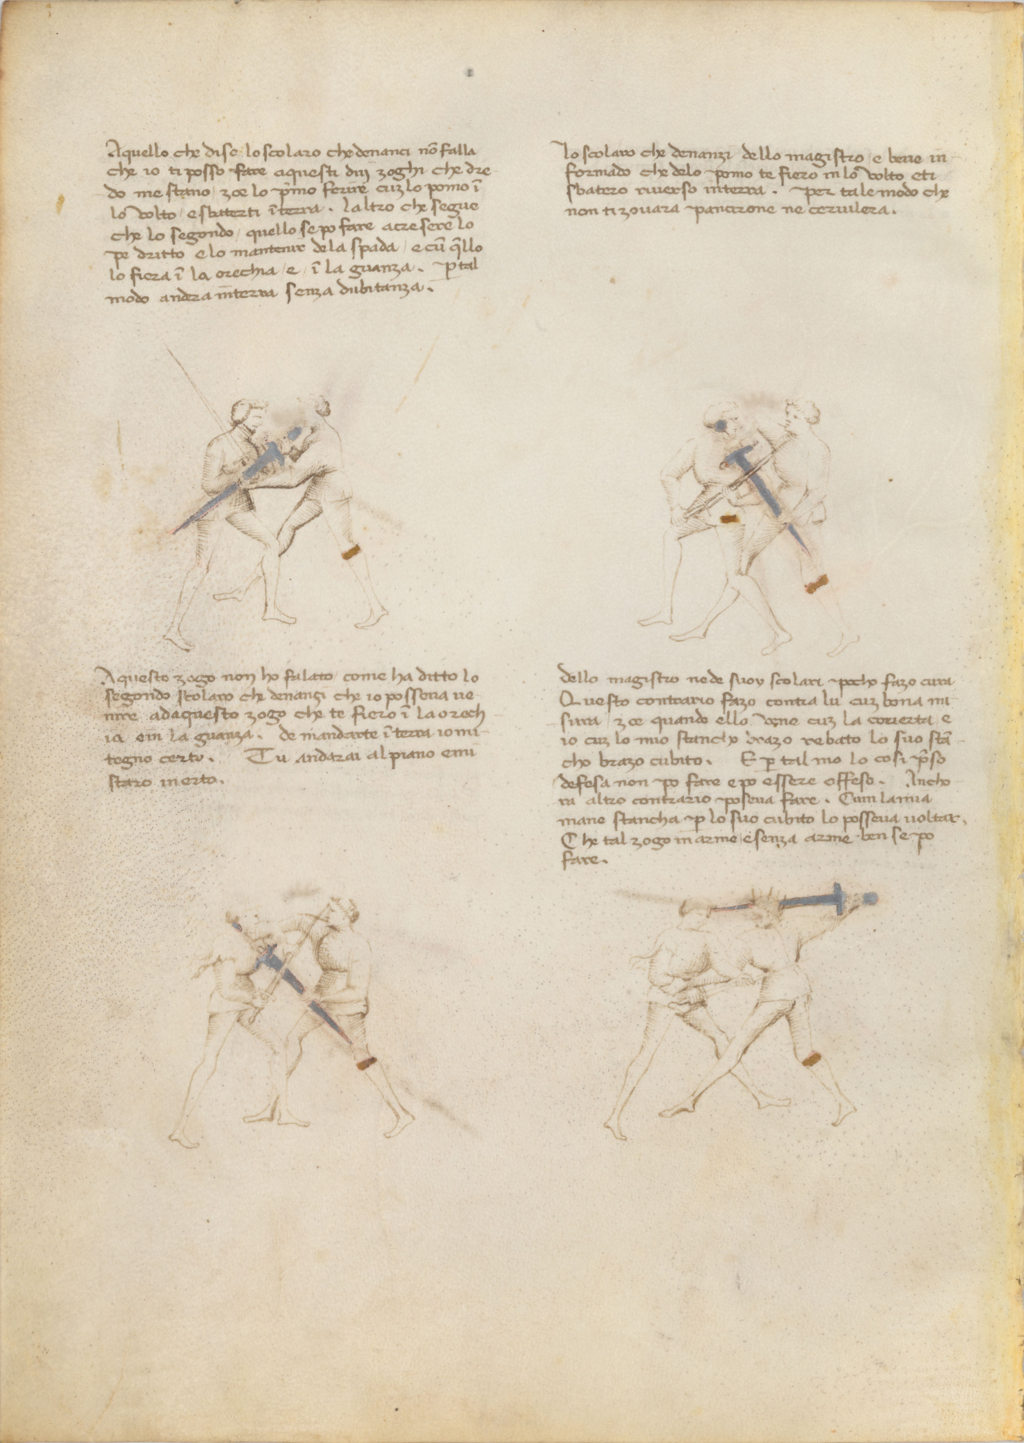 Aquello che dise lo scolaro che denanci nō falla
che io ti posso fare aquesti dui zoghi che dre
do me stano / zoe lo p̄mo ferire cuz lo pomo ī
lo volto / e sbaterti ī terra . laltro che segue
che lo segondo / quello se po fare acresere lo
pe dritto e lo mantenir dela spada / e cū q̄llo
lo fiera ī la orechia / e / ī la guanza . p tal
modo andra in terra senza dubitanza .
lo scolaro che denanzi dello magistro / e bene in
formado che delo pomo te fiero in lo volto e ti
sbatero riverso in terra . Per tale modo che
non ti zovara pancirone ne cervilera .
Aquesto zogo non ho falato come ha ditto lo
segondo scolaro che denanzi che io posseva ve
nire adaquesto zogo che te fiero ī la orech
ia e in la guanza . de mandarte ī terra io mi
tegno certo . Tu andarai al piano e mi
staro in erto .
dello magistro ne de suoy scolari pocho fazo cura
Questo contrario fazo contra lu cuz bona mi
sura / zoe quando ello vene cuz la coverta e
io cuz lo mio stancho brazo rebato lo suo stā
cho brazo cubito . E p tal mo lo cosi p̄so
defesa non po fare e po essere offeso . Ancho
ra altro contrario poseva fare . Cum la mia
mane stancha p lo suo cubito lo posseva voltar .
Che tal zogo in arme e senza arme ben se po
fare .